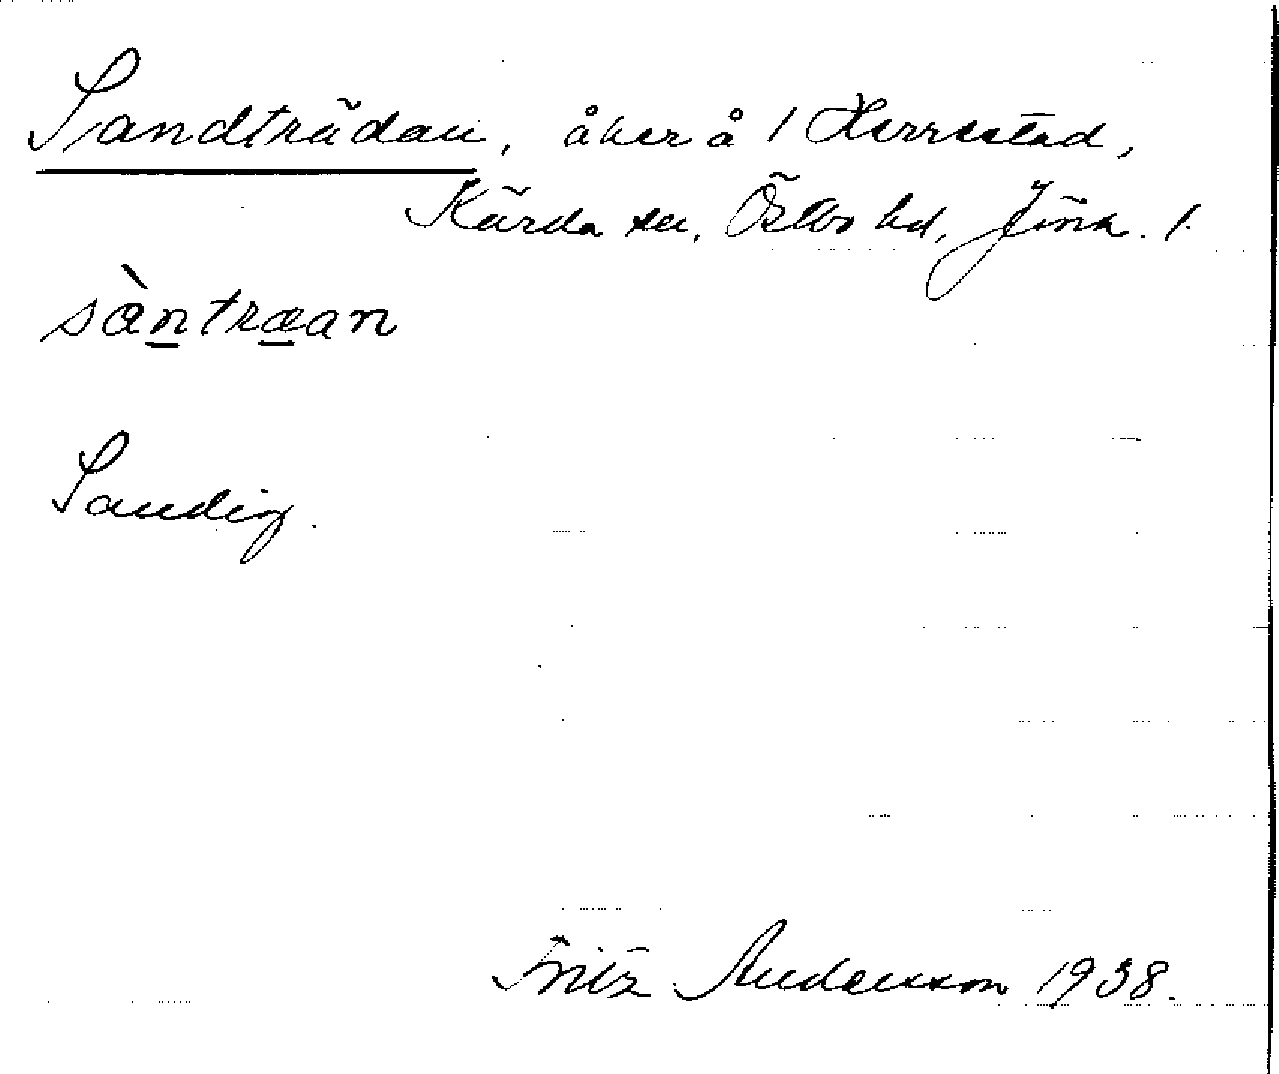 Sandträdan, åker å 1 Herrestad,
Kärda sn, Östbo hd, Jönk. l.
sàntræan
Sandig.
Fritz Andersson 1938.